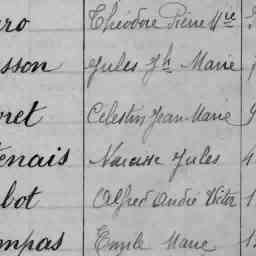 ro Théodore Pierre M^ie
sson Jules J^h Marie
ret Célestin Jean Marie
enais Narcisse Jules 4
bot Alfred André Victor 1
mpas Emile Marie 1